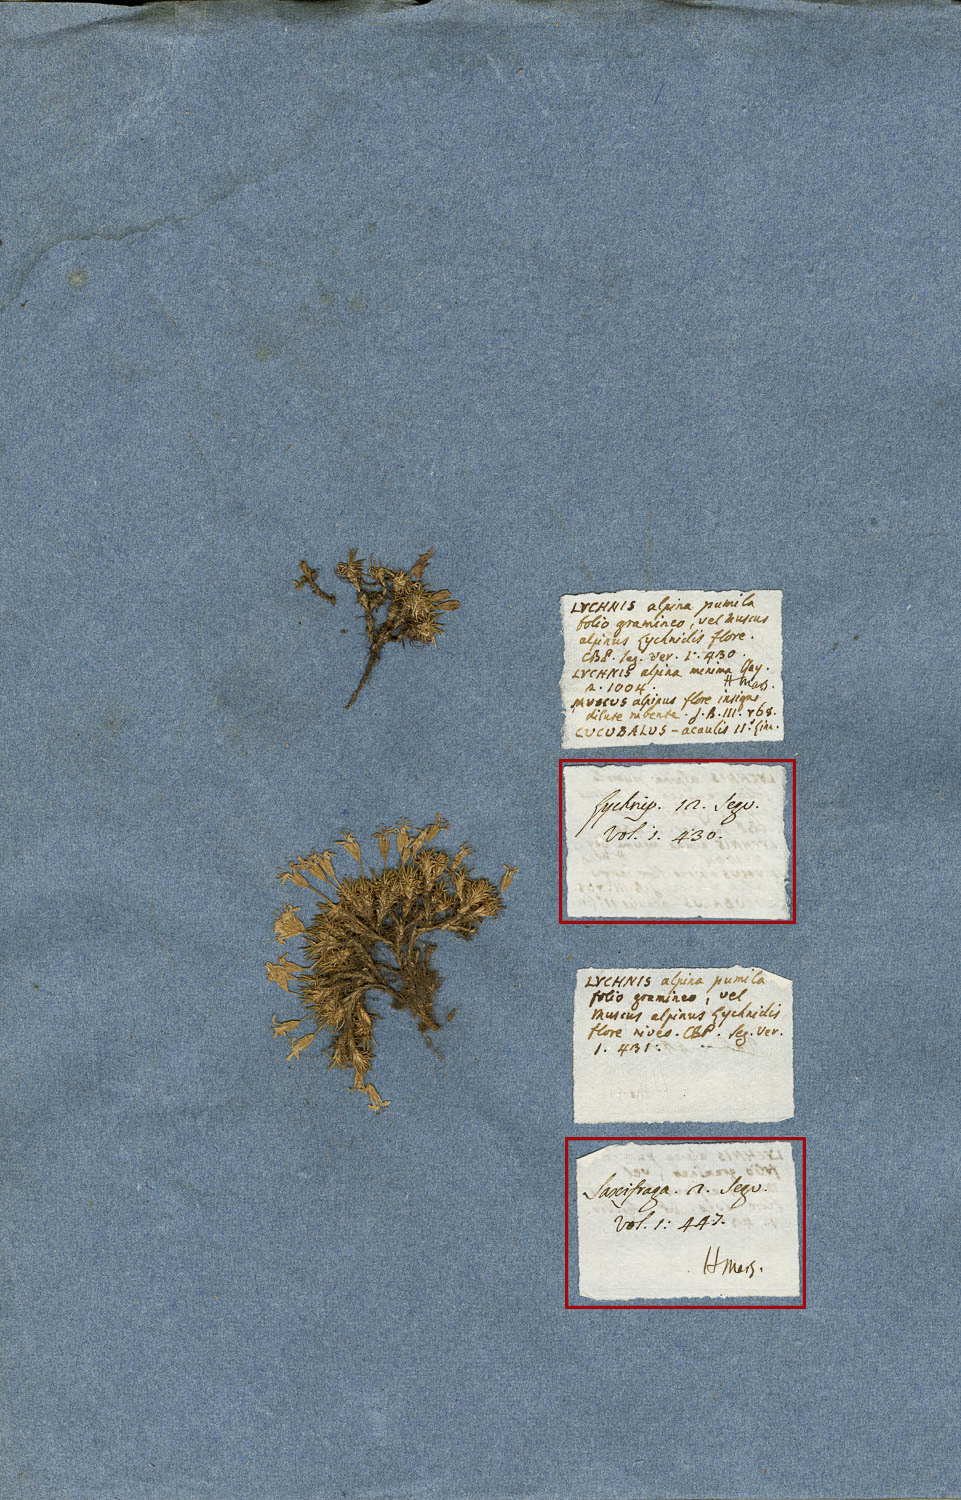 LYCHNIS alpina pumila
folio gramineo, vel Muscus
alpinus Lychnidis flore.
CBP. Seg. ver. 1. 430.
LYCHNIS alpina minima Ray.
n. 1004. HMars.
MUSCUS alpinus flore insigni
dilute rubente. J. B. III. 768.
CUCUBALUS - acaulis 11. Linn.
Lychnis. n. Segu.
Vol. 1. 430.
LYCHNIS alpina pumila
folio gramineo, vel
Muscus alpinus Lychnidis
flore niveo. CBP. Seg. Ver.
1. 431.
Saxifraga. n. Segu.
Vol. 1: 447.
HMars.